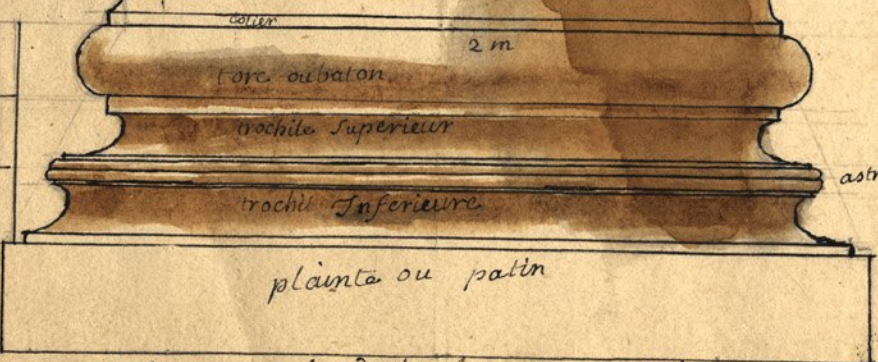 2 m
tore oubaton
trochile Superieur
astr
trochil Inferieure
plainte ou patin